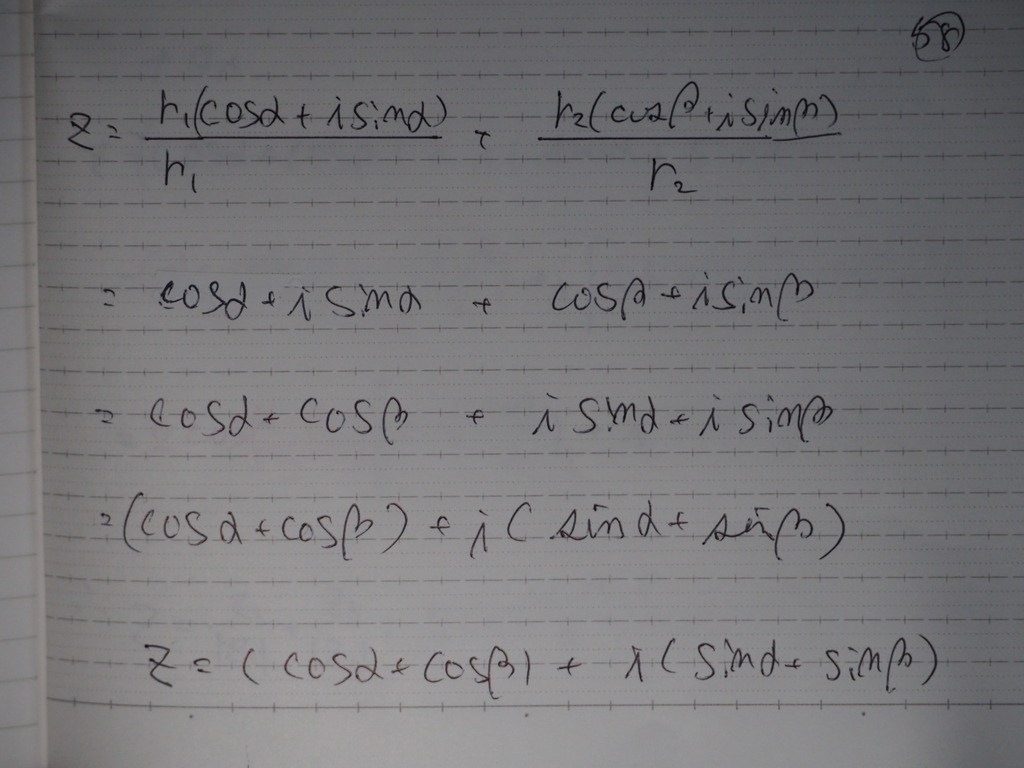 58
z = r₁(cosα + i sinα)/r₁ + r₂(cosβ + i sinβ)/r₂
= cosα + i sinα + cosβ + i sinβ
= cosα + cosβ + i sinα + i sinβ
= (cosα + cosβ) + i( sinα + sinβ)
z = (cosα + cosβ) + i(sinα + sinβ)